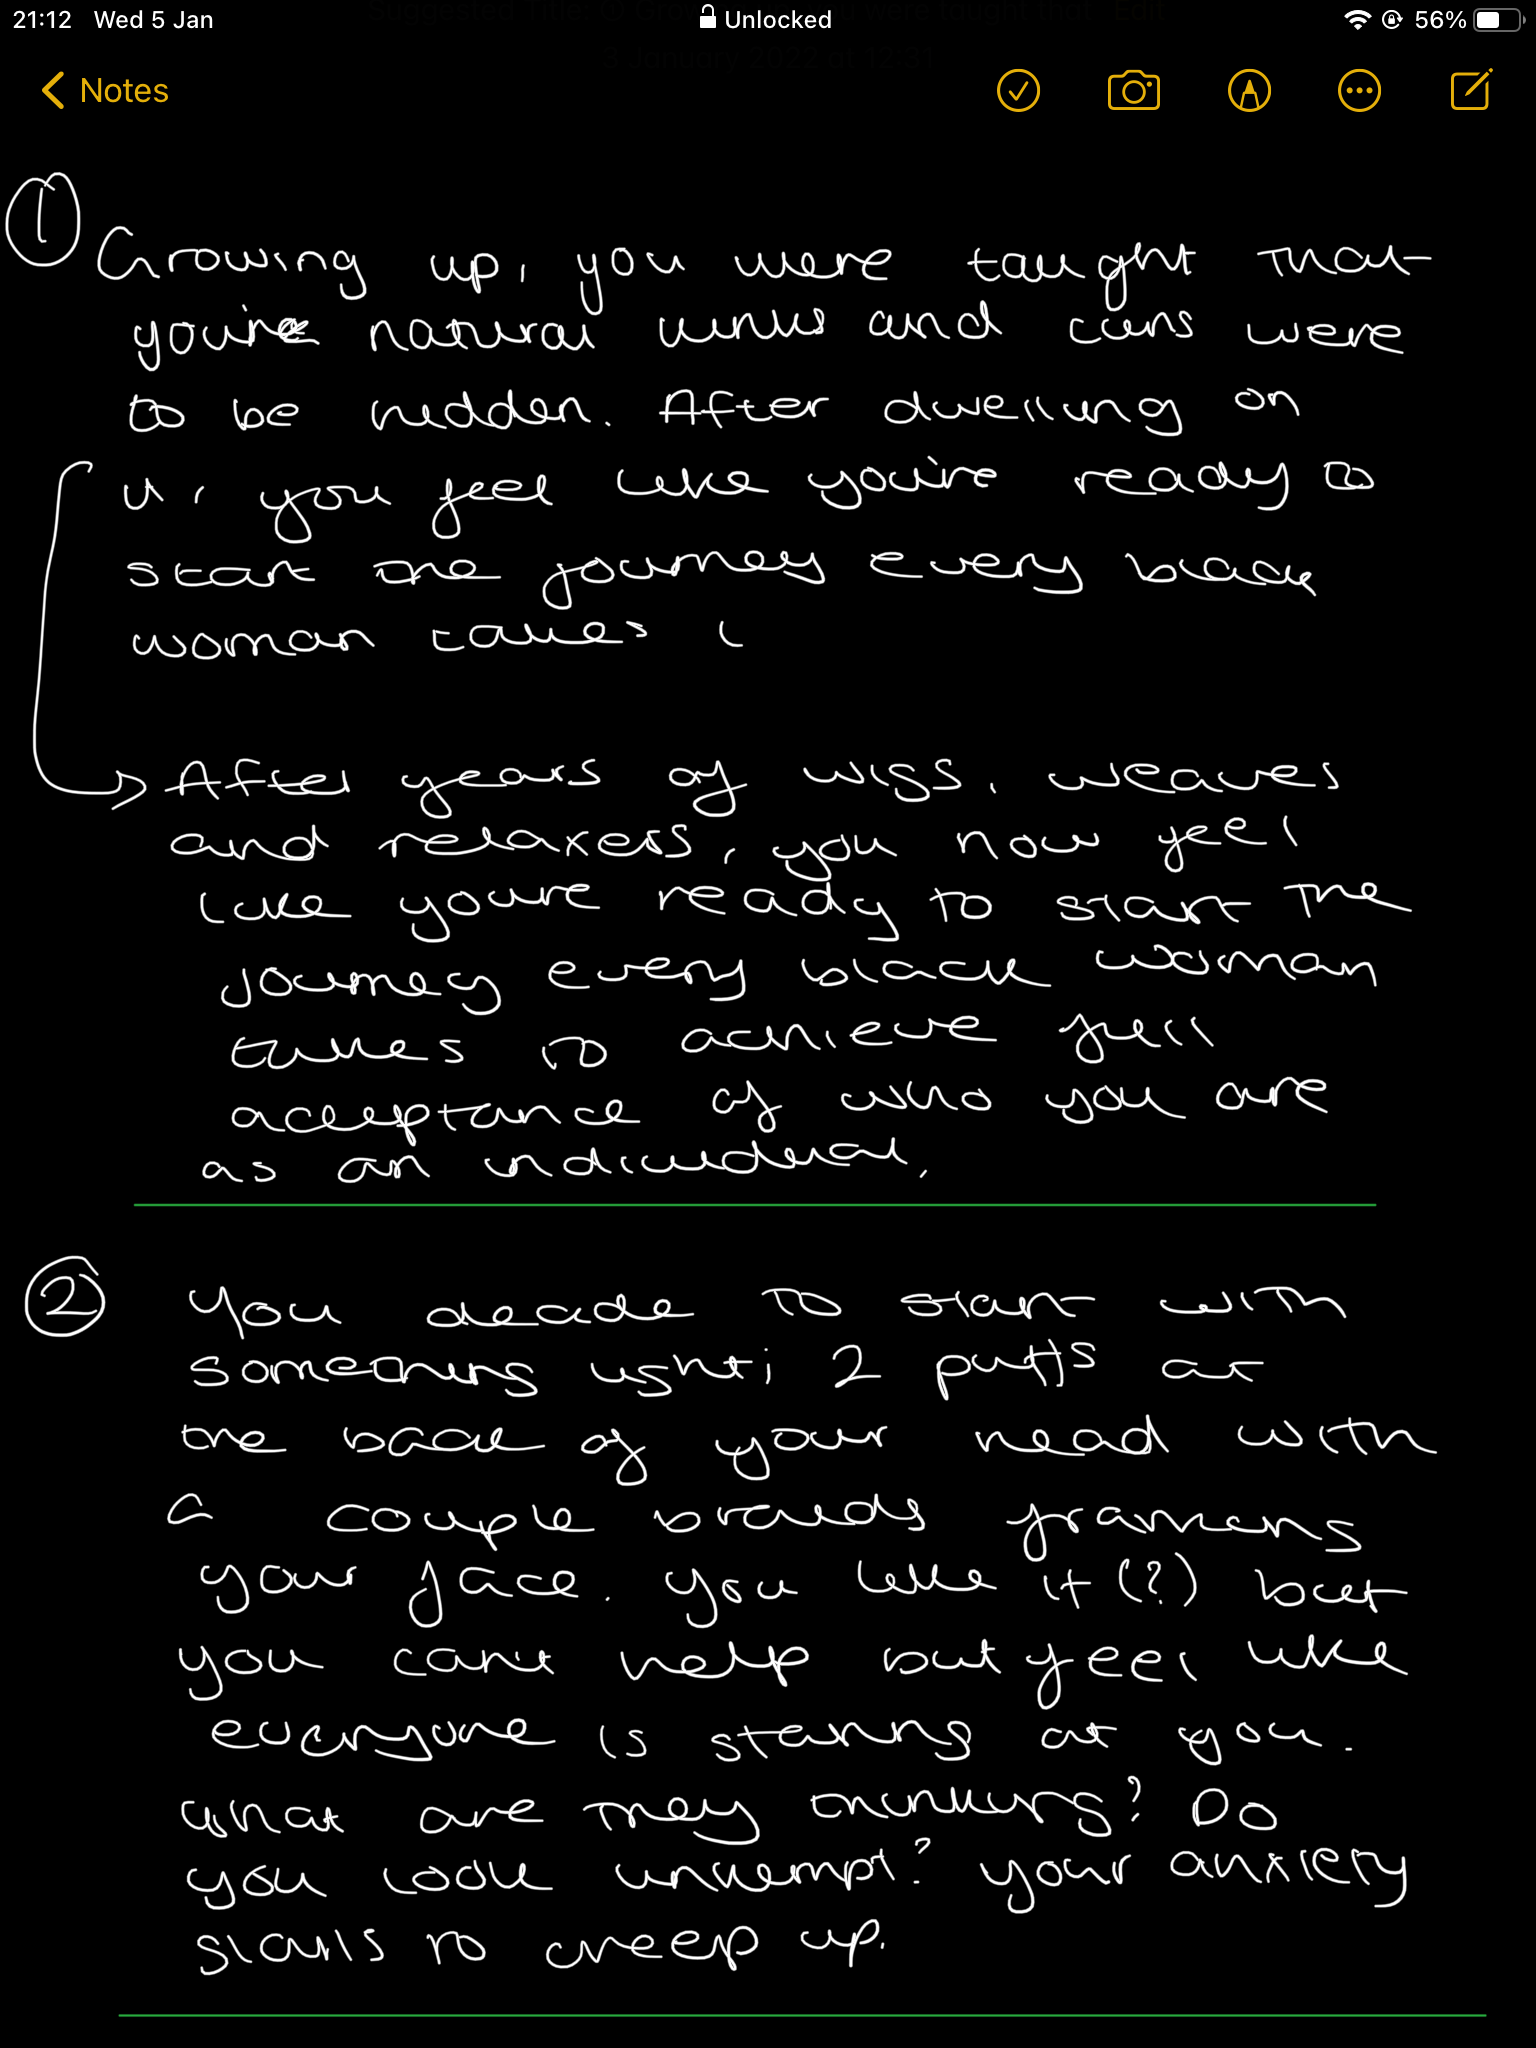 21:12 Wed 5 Jan Unlocked 56%
Notes
①
Growing up, you were taught that
you're natural kinks and curls were
to be hidden. After dwelling on
it, you feel like you're ready to
start the journey every black
woman takes
After years of wigs, weaves
and relaxers, you now feel
like youre ready to start the
journey every black woman
takes to achieve full
acceptance of who you are
as an individual.
②
You decide to start with
something light; 2 puffs at
the back of your head with
a couple braids framing
your face. You like it (?) but
you can't help but feel like
everyone is staring at you.
What are they thinking? Do
you look unkempt? Your anxiety
starts to creep up.